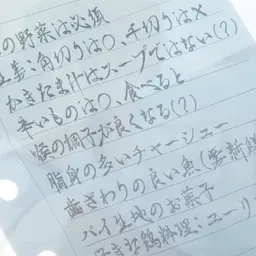 の野菜は必須
生姜：角切りは○、千切りは×
かきたま汁はスープではない(?)
辛いものは○、食べると
喉の調子が良くなる(?)
脂身の多いチャーシュー
歯ざわりの良い魚(要新鮮
パイ生地のお菓子
好きな鶏料理：ユーリ